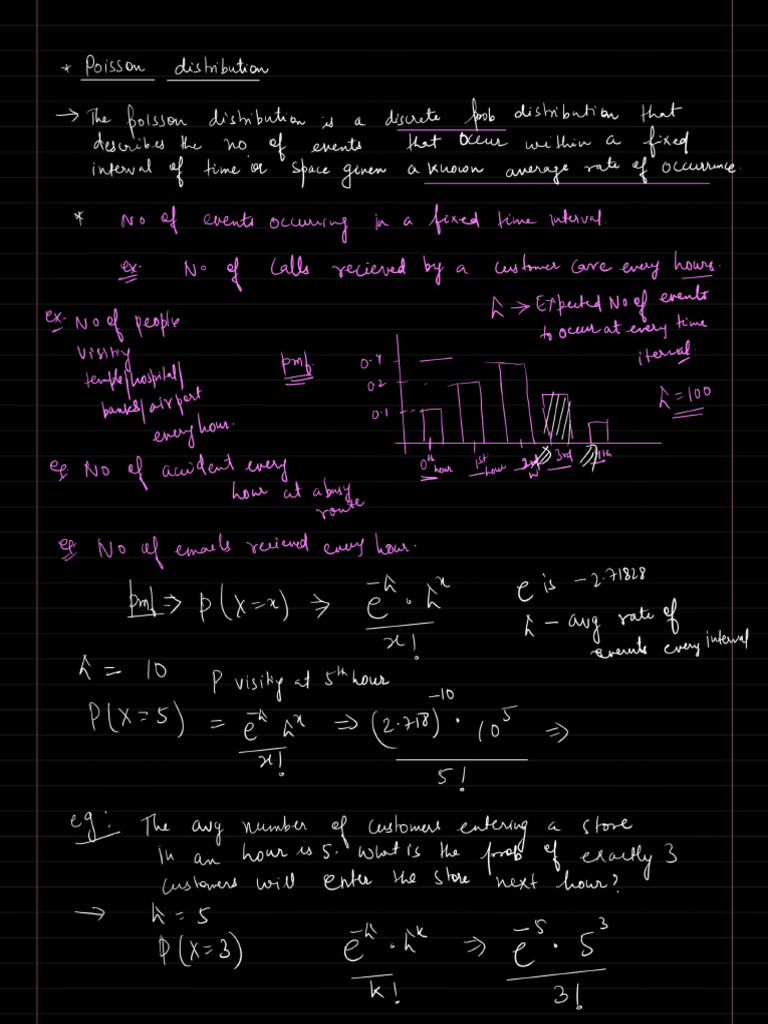 * Poisson distribution
→ The poisson distribution is a discrete prob distribution that
describes the no of events that occur within a fixed
interval of time or space given a known average rate of occurrence.
* No of events occurring in a fixed time interval.
ex. No of calls recieved by a customer care every hours.
λ → Expected No of events
to occur at every time
iterval.
λ = 100
ex. No of people
visitiy
temple/hospital/
banks/airport
every hour.
pmf
0.4
0.2
0.1
0th hour
1st hour
3rd
4th
eg No of accident every
hour at a busy
route
eg No of emails recieved every hour.
pmf ⇒ P(X=x) ⇒ e^-λ · λ^x / x!
e is - 2.71828
λ - avg rate of
events every interval
λ = 10 P visitiy at 5th hour
P(X=5) = e^-λ λ^x / x! ⇒ (2.718)^-10 · 10^5 / 5! ⇒
eg: The avg number of customers entering a store
in an hour is 5. What is the prob of exactly 3
customers will enter the store next hour?
→ λ = 5
P(X=3) e^-λ · λ^k / k! ⇒ e^-5 · 5^3 / 3!